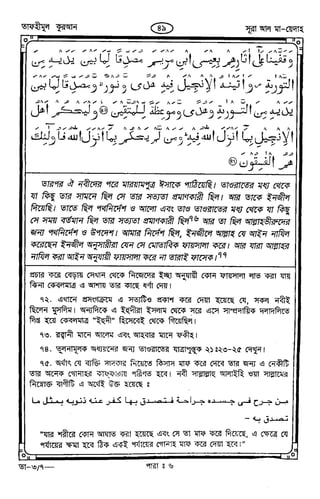 তাফহীমুল কুরআন
৪৯
সূরা আল মা-য়েদাহ
وقفينا على آثارهم بعيسى ابن مريم مصدقا لما بين يديه من
التورية وآتينه الإنجيل فيه هدى ونور ومصدقا لما بين يديه من
التورية وهدى وموعظة للمتقين ﴿٤٦﴾ وليحكم أهل
الإنجيل بما أنزل الله فيه ومن لم يحكم بما أنزل الله فأولئك
هم الفسقون ﴿٤٧﴾
তারপর ঐ নবীদের পরে মারয়ামপুত্র ঈসাকে পাঠিয়েছি। তাওরাতের মধ্য থেকে
যা কিছু তার সামনে ছিল সে তার সত্যতা প্রমাণকারী ছিল। আর তাকে ইনজীল
দিয়েছি। তাতে ছিল পথনির্দেশ ও আলো এবং তাও তাওরাতের মধ্য থেকে যা কিছু
সে সময় বর্তমান ছিল তার সত্যতা প্রমাণকারী ছিল৭৬ আর তা ছিল আল্লাহভীরুদের
জন্য পথনির্দেশ ও উপদেশ। আমার নির্দেশ ছিল, ইনজীলে আল্লাহ যে আইন নাযিল
করেছেন ইনজীল অনুসারীরা যেন সে মোতাবিক ফায়সালা করে। আর যারা আল্লাহর
নাযিল করা আইন অনুযায়ী ফায়সালা করে না তারাই ফাসেক।৭৭
প্রচার করে বেড়ায় সেখান থেকে নিজেদের ইচ্ছা অনুযায়ী কোন ফায়সালা লাভ করা যায়
কিনা কেবলমাত্র এ আশায় তার কাছে ধর্ণা দেয়।
৭২. এখানে প্রসংগক্রমে এ সত্যটিও প্রকাশ করে দেয়া হয়েছে যে, সকল নবীই
ছিলেন মুসলিম। অন্যদিকে এ ইহুদীরা ইসলাম থেকে সরে এসে সাম্প্রদায়িক দলাদলিতে
লিপ্ত হয়ে কেবলমাত্র "ইহুদী" হিসেবেই থেকে গিয়েছিল।
৭৩. রব্বানী মানে আলেম এবং আহবার মানে ফকীহ।
৭৪. তুলনামূলক অধ্যয়নের জন্য তাওরাতের যাত্রাপুস্তক ২১:২৩-২৫ দেখুন।
৭৫. অর্থাৎ যে ব্যক্তি সাদকার নিয়তে কিসাস মাফ করে দেবে তার জন্য এ নেকীটি
তার অনেক গোনাহর কাফ্‌ফারায় পরিণত হবে। নবী সাল্লাল্লাহু আলাইহি ওয়া সাল্লামের
নিম্নোক্ত বাণীটি এ অর্থেই উক্ত হয়েছে :
من جرح فى جسده جراحة فتصدق بها كفر عنه ذنوبه بمثل ما
تصدق به -
"যার শরীরে কোন আঘাত করা হয়েছে এবং সে তা মাফ করে দিয়েছে, এ ক্ষেত্রে যে
পর্যায়ের ক্ষমা হবে ঠিক একই পর্যায়ের গোনাহ মাফ করে দেয়া হবে।"
তা-৩/৭—
পারা : ৬